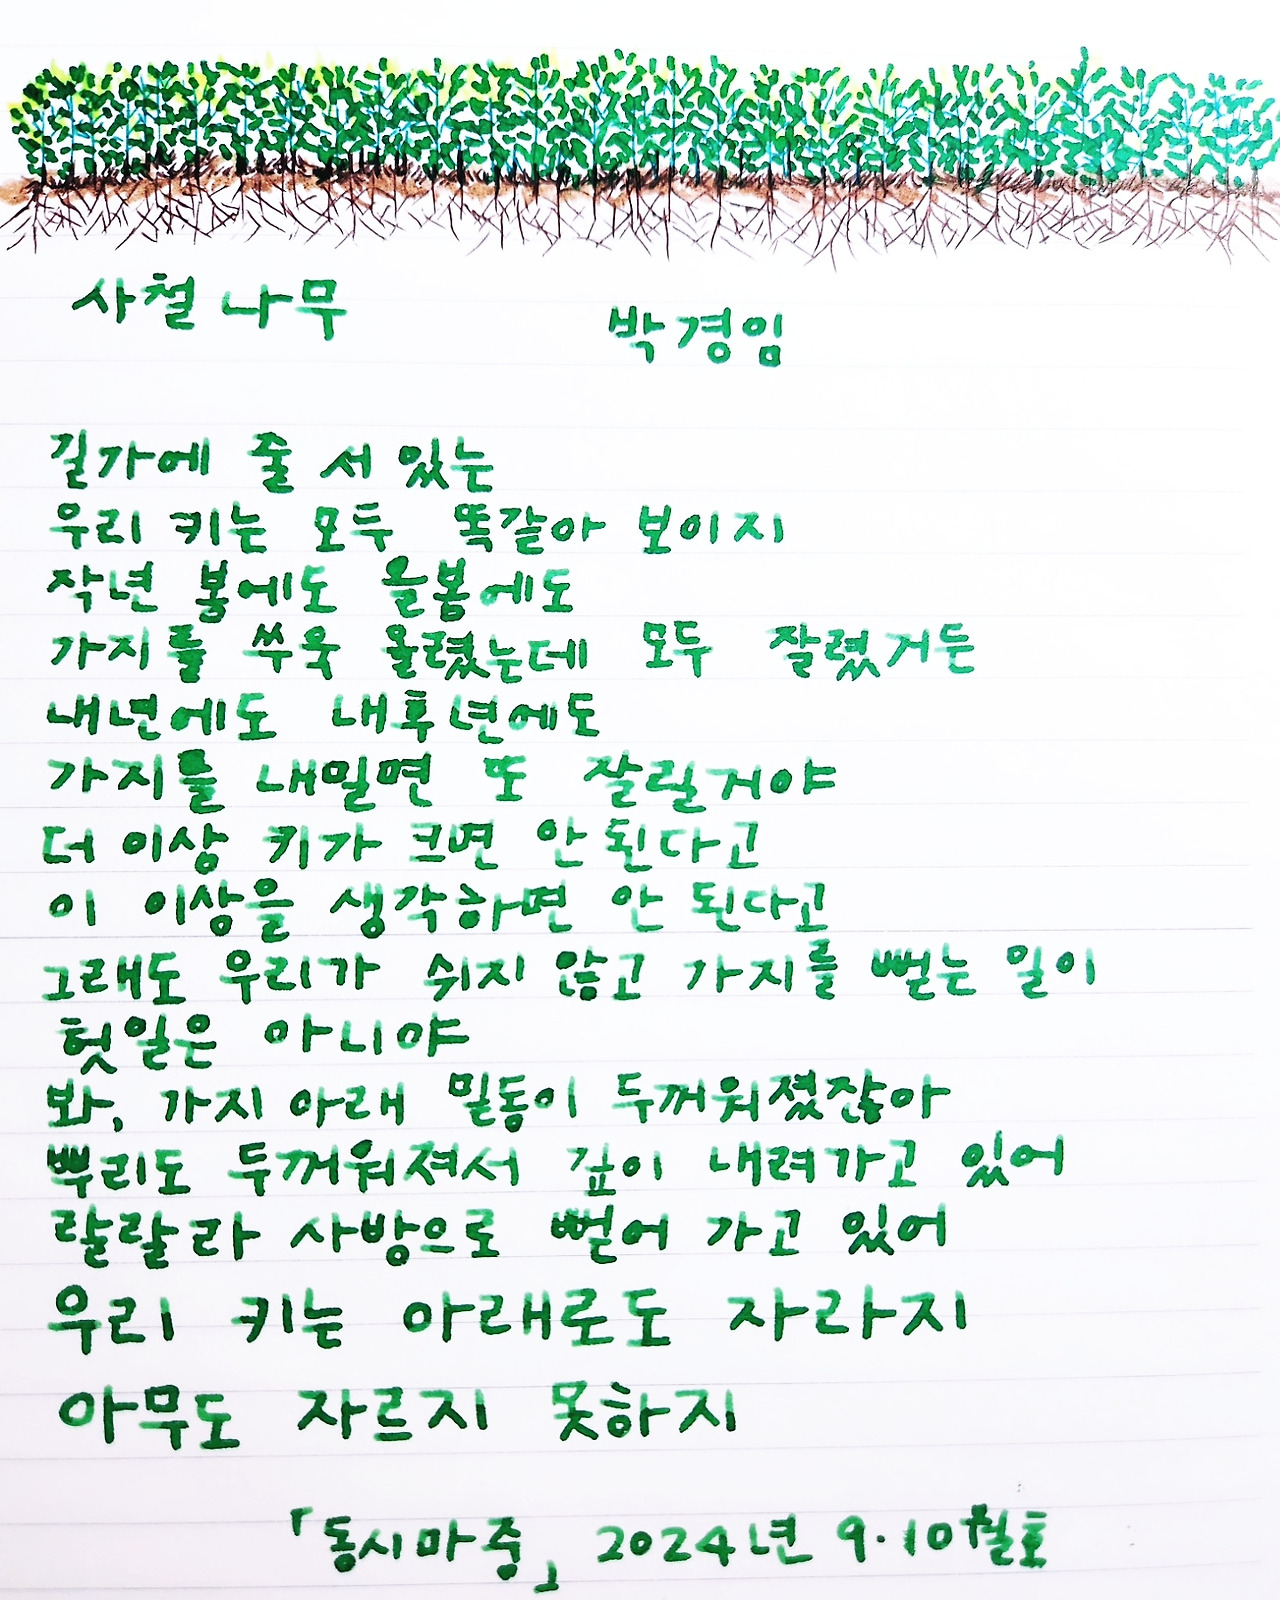 사철나무
박경임
길가에 줄 서 있는
우리 키는 모두 똑같아 보이지
작년 봄에도 올봄에도
가지를 쑤욱 올렸는데 모두 잘렸거든
내년에도 내후년에도
가지를 내밀면 또 잘릴거야
더 이상 키가 크면 안 된다고
이 이상을 생각하면 안 된다고
그래도 우리가 쉬지 않고 가지를 뻗는 일이
헛일은 아니야
봐, 가지 아래 밑동이 두꺼워졌잖아
뿌리도 두꺼워져서 깊이 내려가고 있어
랄랄라 사방으로 뻗어 가고 있어
우리 키는 아래로도 자라지
아무도 자르지 못하지
「동시마중」 2024년 9·10월호